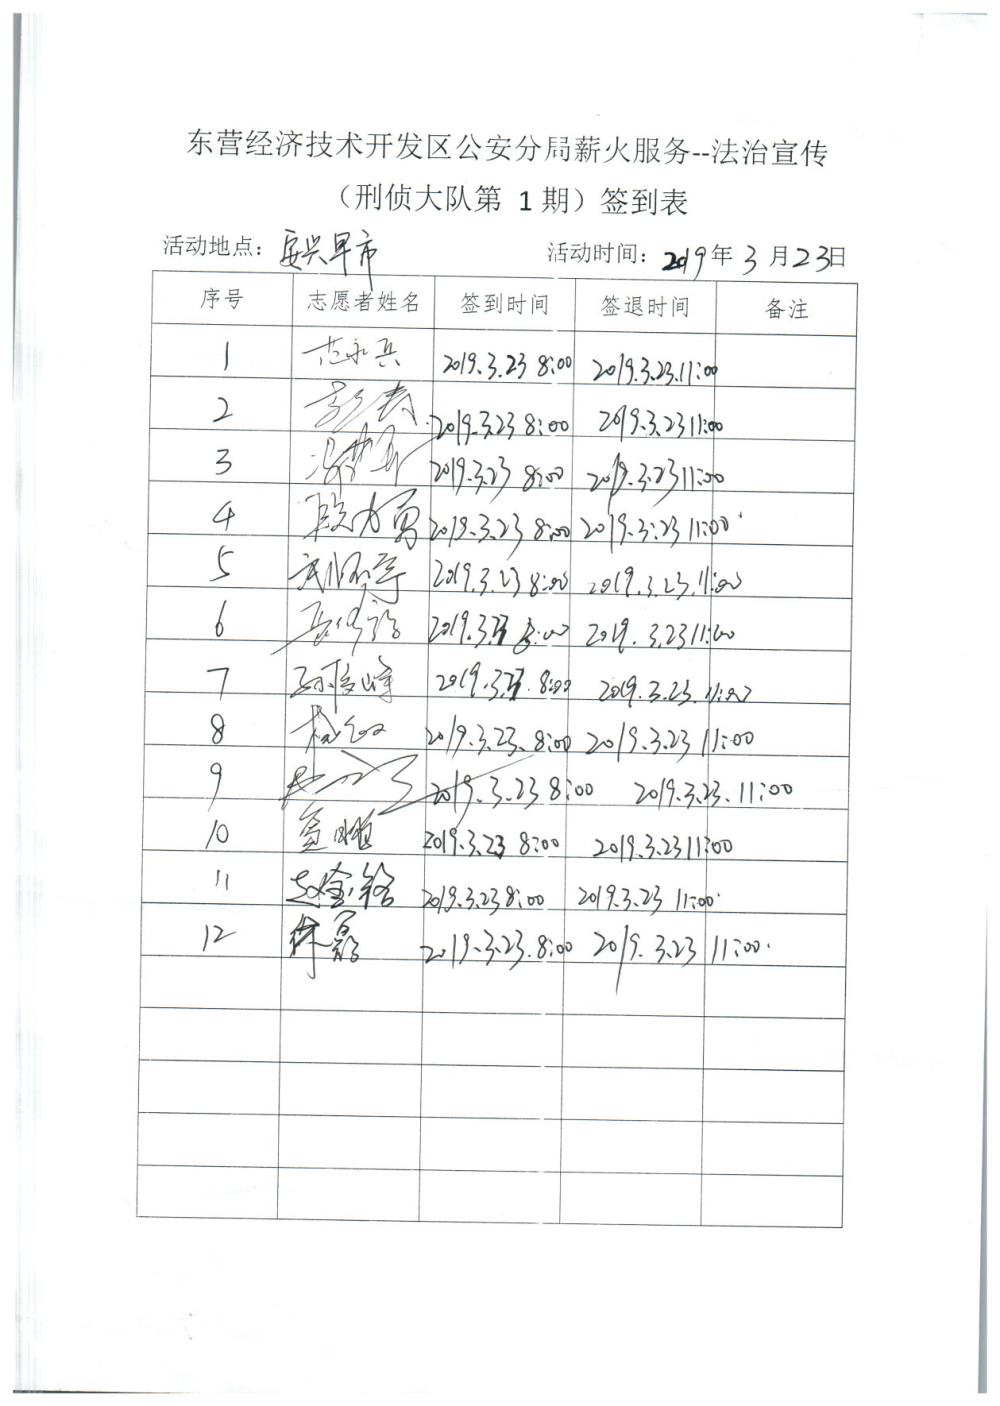 东营经济技术开发区公安分局薪火服务--法治宣传
（刑侦大队第 1 期）签到表
活动地点：安兴早市 活动时间：2019年 3 月 23日
序号 志愿者姓名 签到时间 签退时间 备注
1 范永兵 2019.3.23 8:00 2019.3.23.11:00
2 2019.3.23 8:00 2019.3.23 11:00
3 2019.3.23 8:00 2019.3.23 11:00
4 2019.3.23 8:00 2019.3.23 11:00
5 2019.3.23 8:00 2019.3.23.11:00
6 2019.3.23 8:00 2019.3.23 11:00
7 孙俊峰 2019.3.23.8:00 2019.3.23.11:00
8 2019.3.23.8:00 2019.3.23 11:00
9 2019.3.23 8:00 2019.3.23.11:00
10 2019.3.23 8:00 2019.3.23 11:00
11 赵金铭 2019.3.23 8:00 2019.3.23 11:00
12 2019.3.23.8:00 2019.3.23 11:00